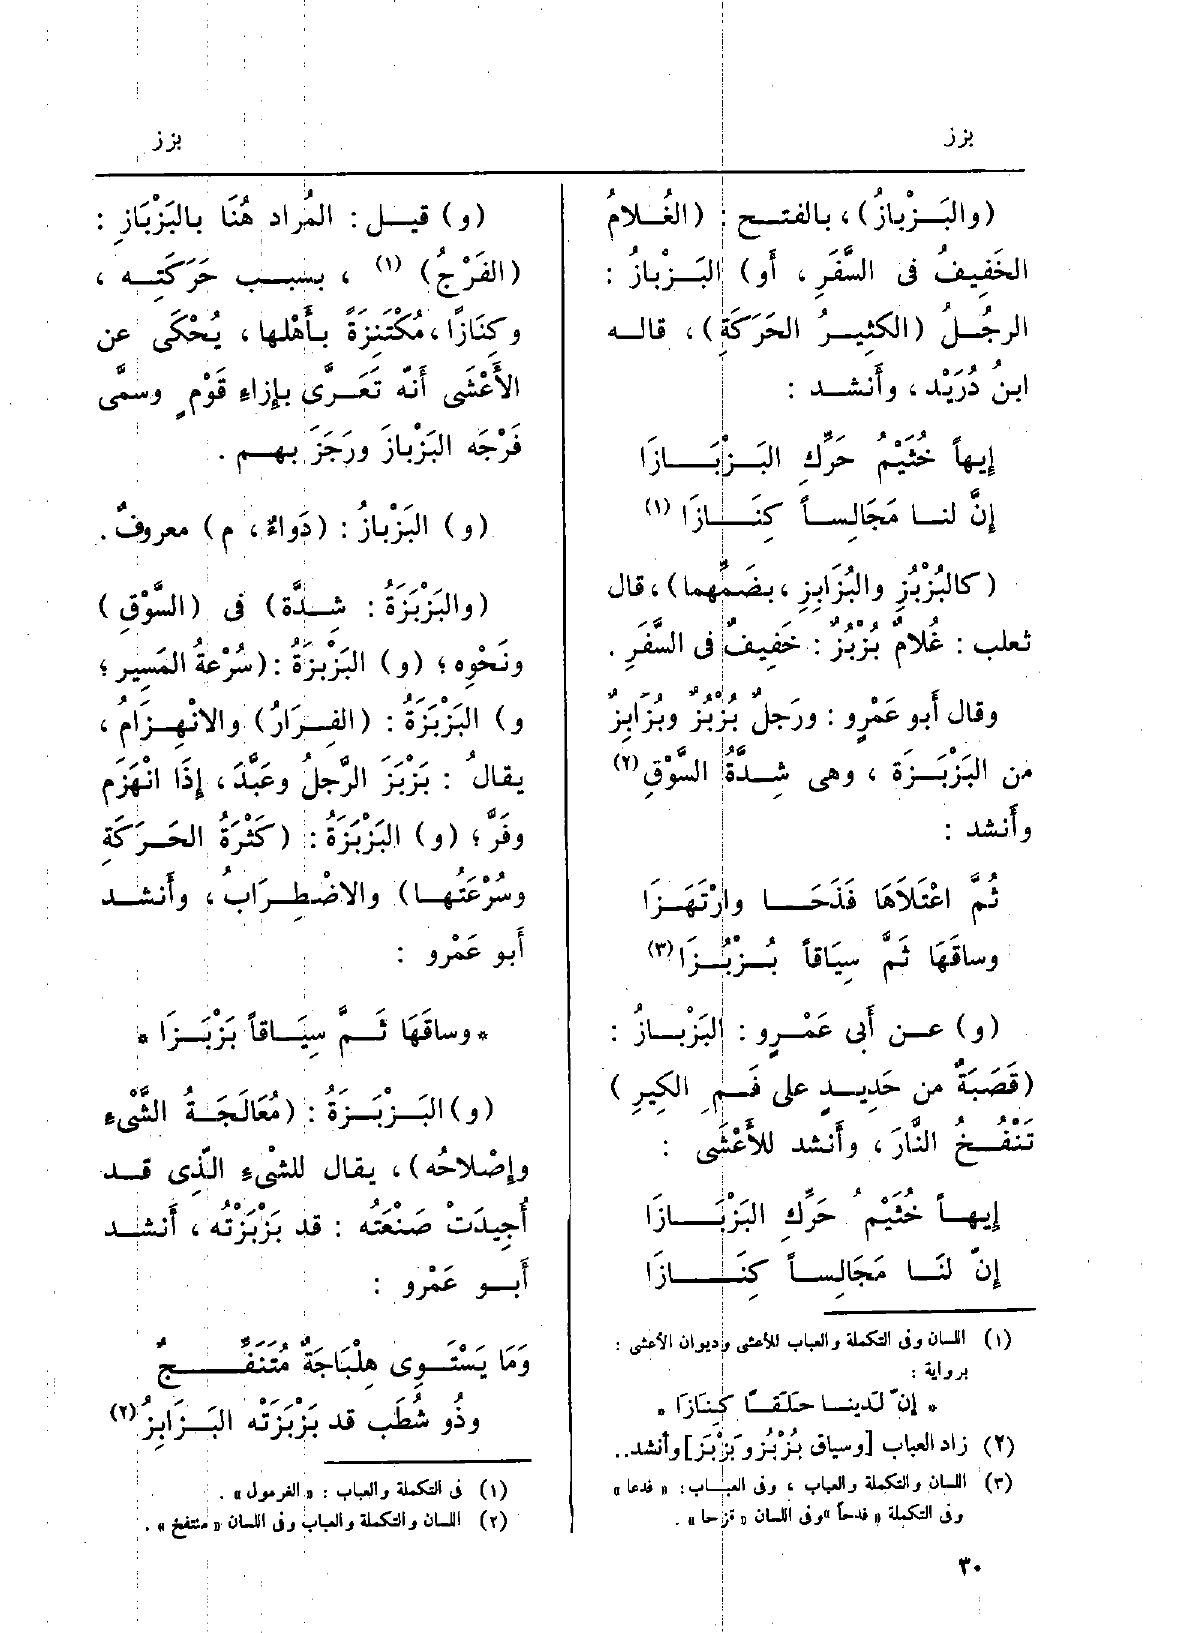 بزز
بزز
(والبَـزْبازُ)، بالفتح : (الغُـلامُ
الخَفِيفُ فى السَّفَرِ ، أَو) البَـزْبازُ :
الرجُـلُ (الكثيـرُ الحَرَكَةِ)، قالـه
ابنُ دُرَيْد ، وأَنشـد :
إِيهاً خُثَيْمُ حَرِّكِ البَـزْبَـازَا
إِنَّ لنـا مَجَالِسـاً كِنَـازَا (١)
(كالبُزْبُزِ والبُزَابِزِ ،بضَمِّهما)، قال
ثعلب : غُلامٌ بُزْبُزٌ : خَفِيفٌ فى السَّفَرِ .
وقال أَبو عَمْرٍو : ورَجلٌ بُزْبُزٌ وبُزَابِزٌ
من البَزْبَـزَة ، وهى شِـدَّةُ السَّوْقِ (٢)
وأَنشد :
ثُمَّ اعْتَلَاهَا فَذَحَـا وارْتَهَـزَا
وساقَهَا ثَمَّ سِيَاقاً بُـزْبُـزَا (٣)
(و) عـن أَبى عَمْـرٍو : البَزْبـازُ :
(قَصَبَةٌ من حَدِيـدٍ على فَـمِ الكِيرِ )
تَنْفُـخُ النَّارَ ، وأَنشد للأَعْشَى :
إِيهـاً خُثَيْمُ حَرِّكِ البَزْبَـازَا
إِنّ لَنَـا مَجَالِسـاً كِنَـازَا
(١) اللسان وفى التكملة والعباب للأعشى وديوان الأعشى :
برواية :
* إنّ لَدينـا حلَقـًا كِنَازَا *
(٢) زاد العباب [وسياق بُزْبُز وبَزْبَز] وأنشد..
(٣) اللسان والتكملة والعباب ، وفى العبـاب : « فدعا »
وفى التكملة « فدحاً » وفى اللسان « قزحا » .
(و) قيـل : المُراد هُنَا بالبَزْبَازِ :
(الفَرْجُ) (١) ، بسبـب حَرَكَتِـه ،
وكِنَازًا، مُكْتَنِزَةً بأَهْلها، يُحْكَى عن
الأَعْشَى أَنّه تَعَـرَّى بإِزاءِ قَوْمٍ وسمَّى
فَرْجَه البَزْبازَ ورَجَزَ بهـم .
(و) البَزْبازُ : (دَواءٌ، م) معروفٌ .
(والبَزْبَزَةُ : شِـدَّة) فى (السَّوْقِ )
ونَحْوِه؛ (و) البَزْبزَةُ : (سُرْعةُ المَسِير ؛
و) البَزْبَزَةُ : (الفِـرَارُ) والانْهِـزَامُ ،
يقالُ : بَزْبَزَ الرَّجلُ وعَبَّدَ ، إِذَا انْهَزَم
وفَرَّ ؛ (و) البَزْبَزَةُ : (كَثْرَةُ الحَـرَكَةِ
وسُرْعَتُهـا) والاضْطِـرَابُ، وأَنشـد
أَبو عَمْرٍو :
* وساقَهَا ثَـمَّ سِيَـاقاً بَزْبَـزَا *
(و) البَـزْبَـزَةُ : (مُعَالَجَـةُ الشَّىْءِ
وإِصْلاحُه)، يقال للشىْءِ الَّذِى قـد
أُجِيدَتْ صَنْعَتُه : قد بَزْبَزْتُه ، أَنشـد
أَبـو عَمْرٍو :
وَمَا يَسْتَـوِى هِلْبَاجَةٌ مُتَنَفِّـجٌ
وذُو شُطَبٍ قد بَزْبَزَتْه البَـزَابِزُ (٢)
(١) فى التكملة والعباب : « الغرمول » .
(٢) اللسان والتكملة والعباب وفى اللسان « منتفخ » .
٣٠